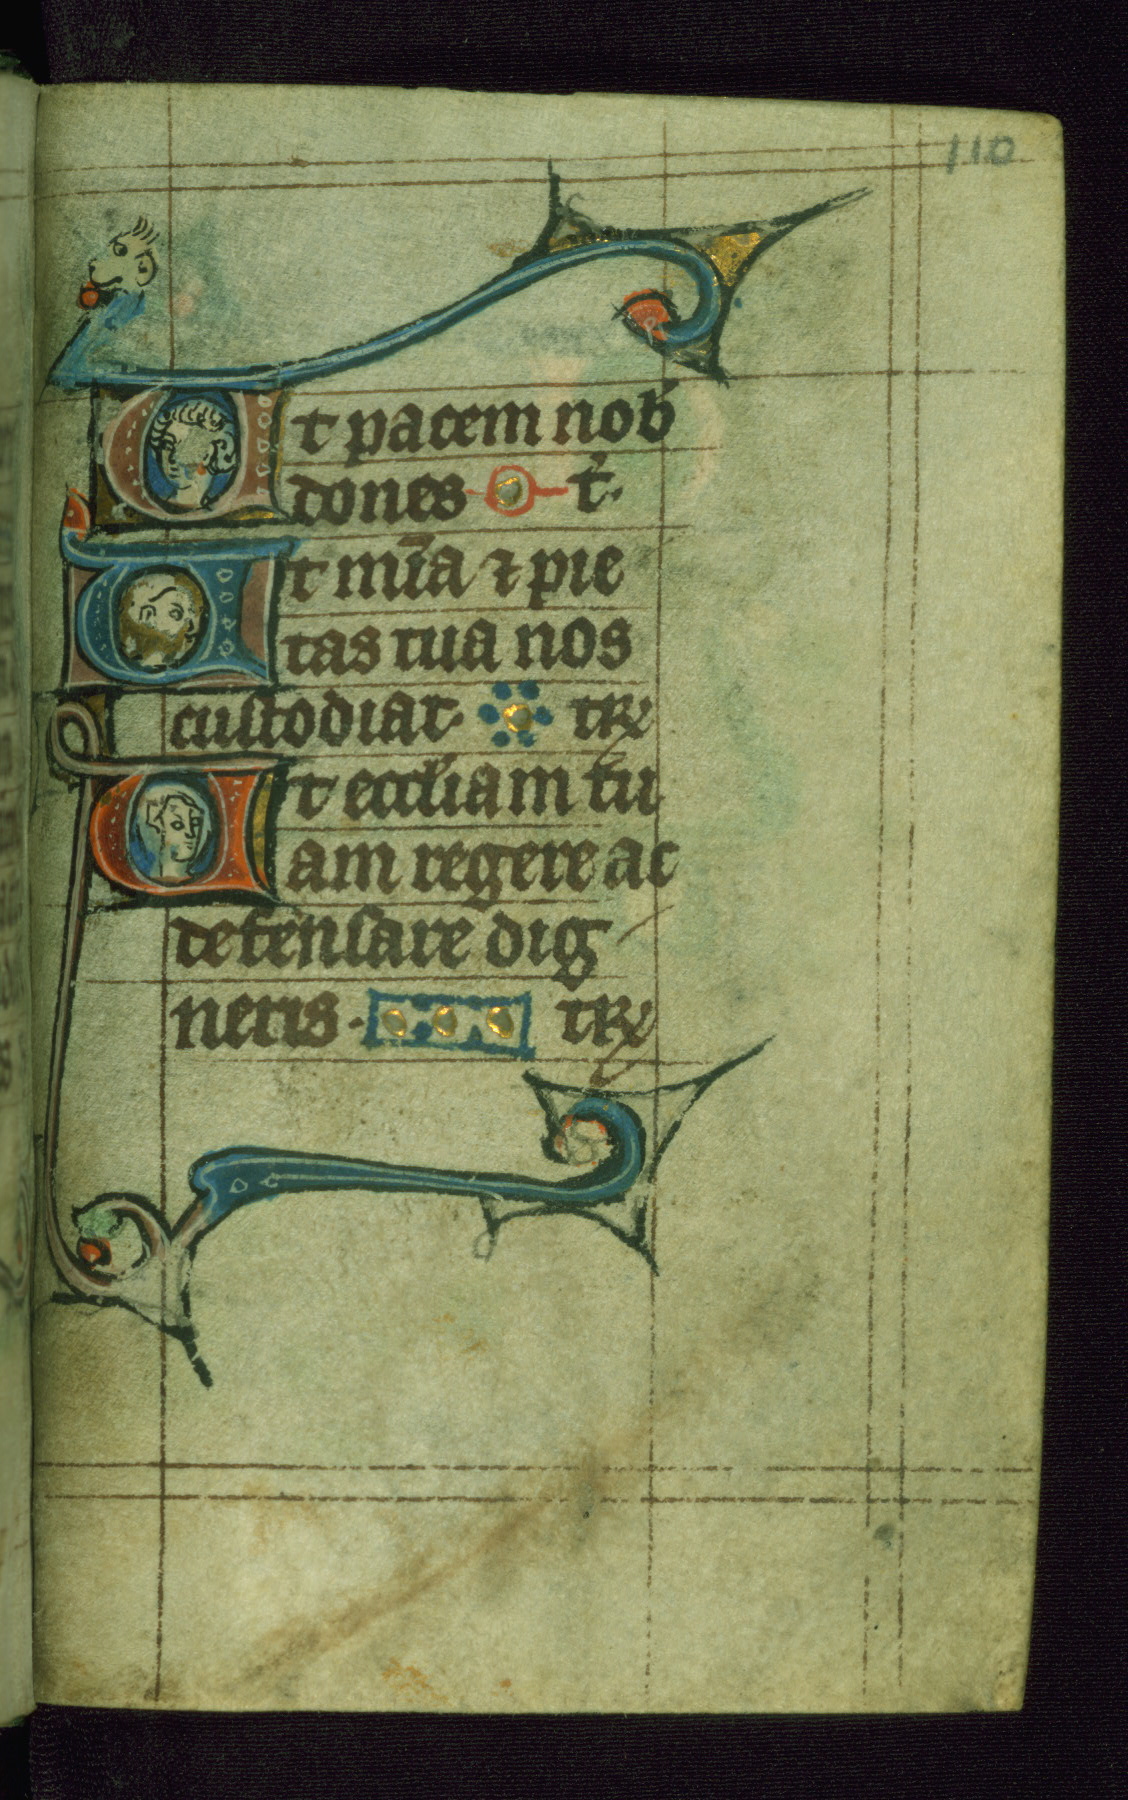 110
Ut pacem nob̾
dones t̾.
Ut mīa ⁊ pie
tas tua nos
custodiat. tR̷
Ut eccl̾iam tu
am regere ac
defensare dig
neris. tR̷